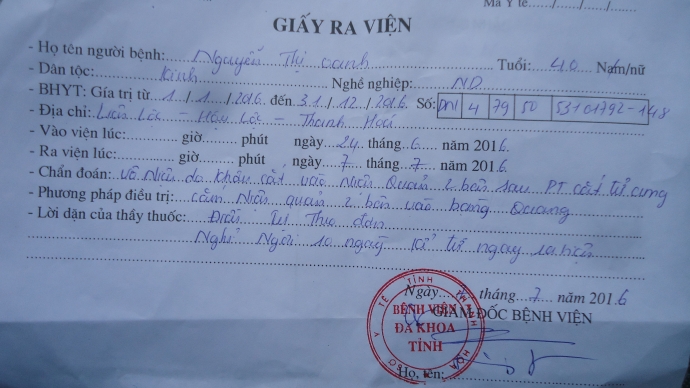 Mã Y tế....../....../......
GIẤY RA VIỆN
- Họ tên người bệnh: Nguyễn Thị oanh Tuổi: 40 Nam/nữ
- Dân tộc: kinh Nghề nghiệp: ND
- BHYT: Gía trị từ 1 / 1 / 2016 đến 31 / 12 / 2016 Số: DN 4 79 50 53101792-148
- Địa chỉ: Liên Lộc - Hậu Lộc - Thanh Hoá
- Vào viện lúc: giờ phút ngày 24 tháng 6 năm 2016
- Ra viện lúc: giờ phút ngày 7 tháng 7 năm 2016
- Chẩn đoán: vô Niệu do khâu cắt vào Niệu Quản 2 bên sau PT cắt tử cung
- Phương pháp điều trị: cắm Niệu quản 2 bên vào bàng Quang
- Lời dặn của thầy thuốc: Thuốc đơn
Nghỉ Ngơi 10 ngày kể từ ngày ra viện
Ngày tháng 7 năm 2016
GIÁM ĐỐC BỆNH VIỆN
BỆNH VIỆN
ĐA KHOA
TỈNH
Họ, tên: